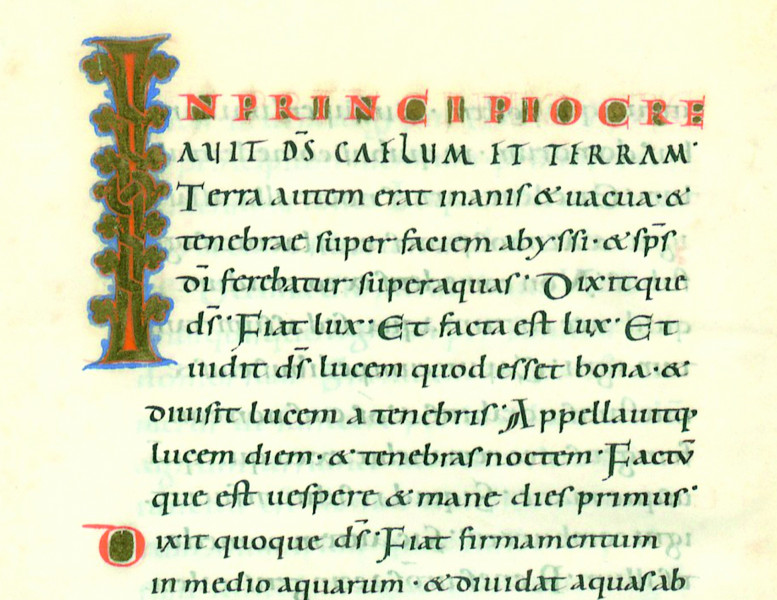 IN PRINCIPIO CRE
AVIT D̄S CAELUM ET TERRAM·
Terra autem erat inanis & uacua· &
tenebrae super faciem abyssi· & sp̄s
dī ferebatur super aquas· Dixitque
ds̄· Fiat lux· Et facta est lux· Et
uidit ds̄ lucem quod esset bona· &
diuisit lucem a tenebris· Appellauitq;
lucem diem· & tenebras noctem· Factū
que est uespere & mane dies primus·
Dixit quoque ds̄· Fiat firmamentum
in medio aquarum· & diuidat aquas ab